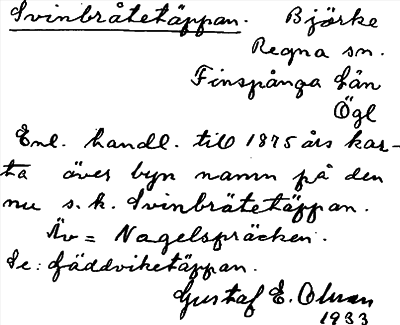 Svinbråtetäppan. Björke
Regna sn.
Finspånga län
Ögl
Enl. handl. till 1875 års kar-
ta över byn namn på den
nu s. k. Svinbråtetäppan.
Äv = Nagelspräcken.
Se: Fäddviketäppan.
Gustaf E. Olsson
1933